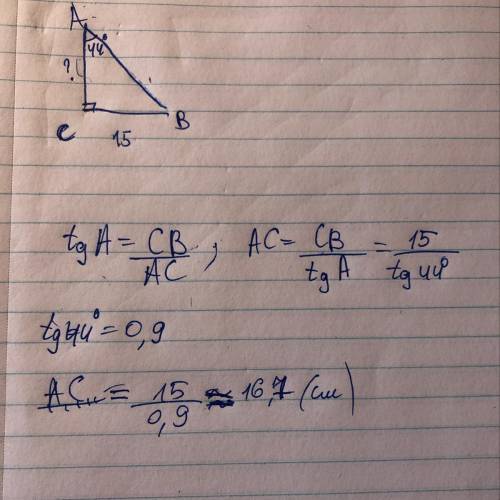 A
44°
?
C
15
B
tg A = CB/AC ; AC = CB/tg A = 15/tg 44°
tg 44° = 0,9
AC = 15/0,9 ≈ 16,7 (см)